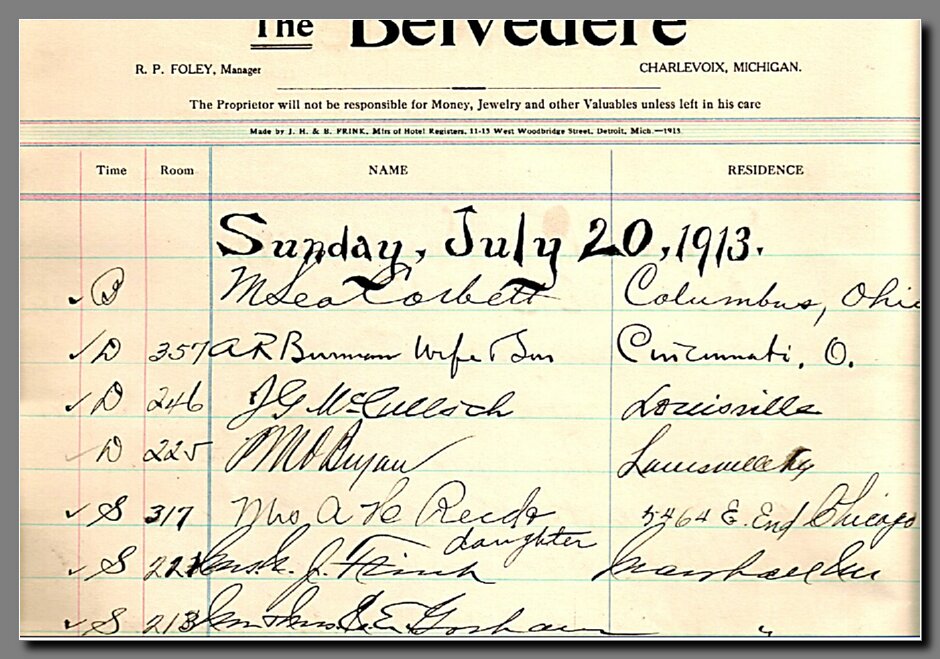 The Belvedere
R. P. FOLEY, Manager CHARLEVOIX, MICHIGAN.
The Proprietor will not be responsible for Money, Jewelry and other Valuables unless left in his care
Made by J. H. & B. FRINK, Mfrs of Hotel Registers, 11-13 West Woodbridge Street, Detroit, Mich.—1913
Time Room NAME RESIDENCE
Sunday, July 20, 1913.
✓ B Corbett Columbus, Ohio
✓ D 357 A R Burman Wife & Son Cincinnati, O.
✓ D 246 J G McCulloch Louisville
D 225 Bryan Louisville Ky
✓ S 317 Mrs A Reed & 5464 E. End Chicago
daughter
✓ S J. Finch Marshall
✓ S 213 E. Gorham "